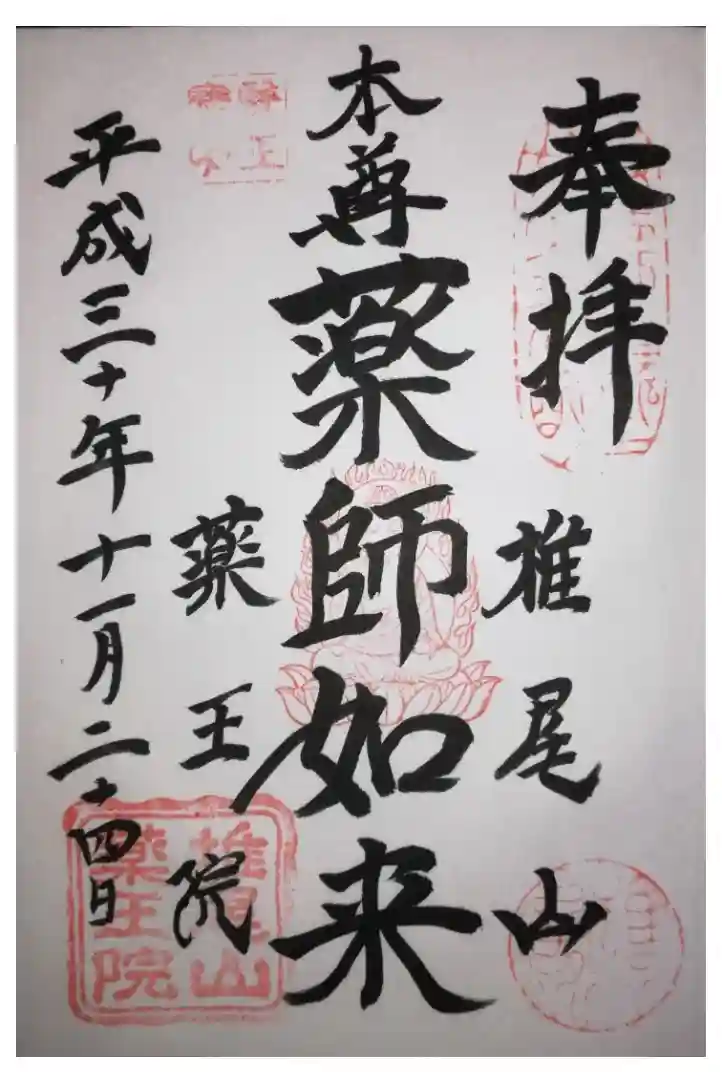 奉拝
椎尾山
本尊薬師如来
薬王院
平成三十年十一月二十四日
椎尾山
薬王院